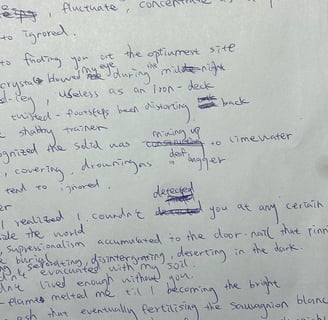 , fluctuate, concentrate
to ignored.
to finding you at the optimum site
crystals blowed my eye during the midnight
d-icy, useless as an iron-deck
twisted-footsteps been distorting back
shabby trainer
ognized the solid was mixing up to limewater
, covering, drowning as a deaf dagger
tend to ignored.
er
I realized I couldn't detected you at any certain
side the world
, supressionalism accumulated to the door-nail that pinn
burial
ng, separating, disintergrating, deserting in the dark.
dn't evacuated with my soil
dn't lived enough without you.
flames melted me til I becoming the bright
ash that eventually fertilising the sauvagnion blanc